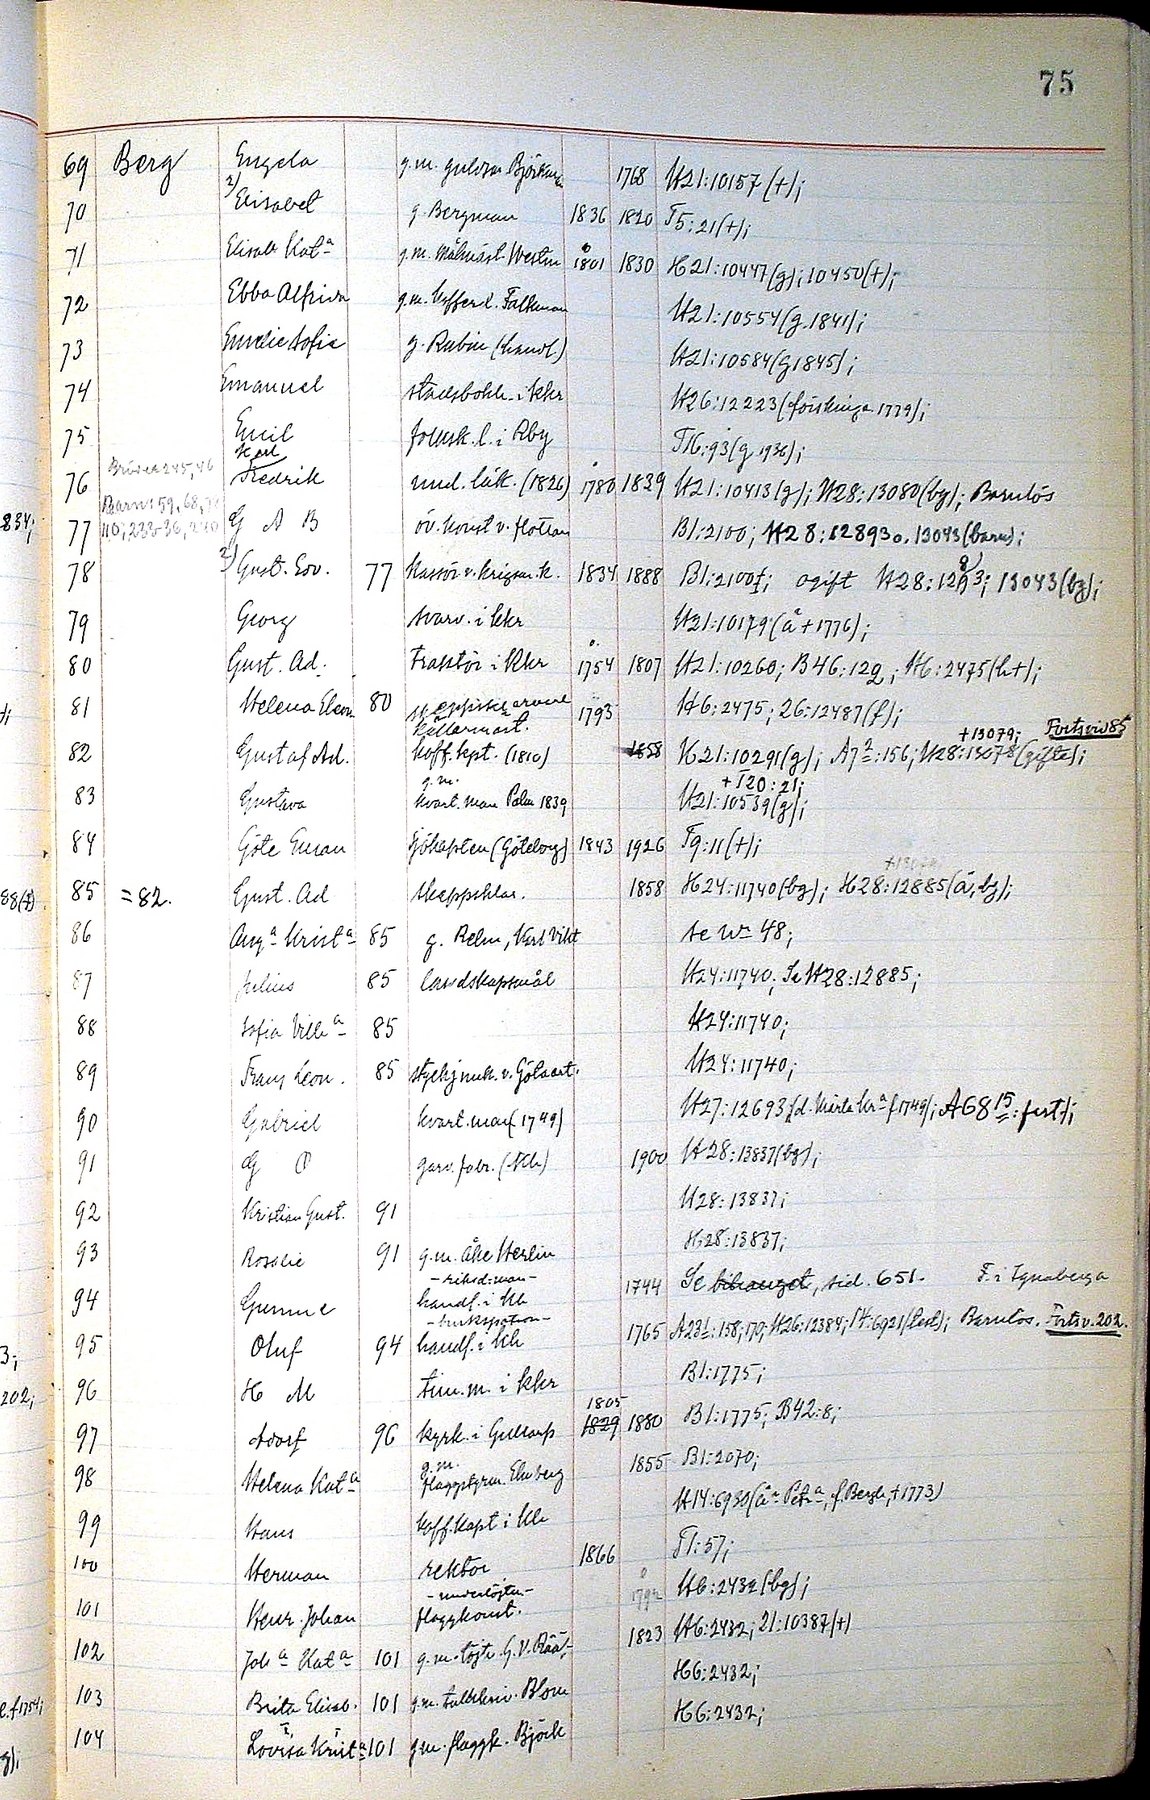 75
69 Berg Engela g.m. guldsm Björkman 1768 H21:10157 (+);
70 2) Elisabet g. Bergman 1836 1820 T5:21(+);
71 Elisab Kat:a g.m. Westin 1801 1830 H21:10447(g); 10450(+);
72 Ebba Alfrida g.m. kofferd. Falkman H21:10554(g.1841);
73 Emelie Sofie g. Rubin (handl) H21:10584(g1845);
74 Emanuel stadsbokh. i Khr H26:12223( 1779);
75 Emil folksk.l. i Rby T16:93(g 1936);
76 Karl Fredrik med. lält. (1826) 1780 1839 H21:10413(g); H28:13080(bg); Barnlös
Barn: 59, 68,
110; 233-36, 240
77 G A B öv. konst v. flottan B1:2100; H28:12893 o. 13043(barn);
78 2) Gust. Edv. 77 kassör v. krigsm.k. 1834 1888 B1:2100+; ogift 13043(bg);
79 Georg svarv. i khr H21:10179(ä +1776);
80 Gust. Ad. traktör i Khr 1754 1807 H21:10260; B46:129; H6:2475(h+);
81 Helena Eleon 80 1793 H6:2475; 26:12487(f);
82 Gustaf Ad. källarmäst. koff.kpt. (1810) 1858 H21:10291(g); A7 2:156; H28:13078(gifte); +13079; Forts vid 85
83 Gustava g.m. kvart.man Palm 1839 H21:10539(g); +T20:21;
84 Göte Eman sjökapten (Göteborg) 1843 1926 T9:11(+);
85 =82. Gust. Ad skeppsklar. 1858 H24:11740(bg); H28:12885(ä, bg);
86 Aug:a Krist:a 85 g. Relm, Karl Vikt se N:r 48;
87 Julius 85 landskapsmål H24:11740; Se H28:12885;
88 Sofia Vilh:a 85 H24:11740;
89 Frans Leon. 85 styckjunk. v. Götaart. H24:11740;
90 Gabriel kvart.man (1749) H27:12693(d. Märta Kr:a f1749); A68 15:
91 G O garv. fabr. (Kh) 1900 H28:13837(bg);
92 Kristian Gust. 91 H28:13837;
93 Rosalie 91 g.m. Åke Herlin H28:13837;
94 Gumme -riksd:man- handl. i Kh 1744 Se bihanget, sid. 651. F. i Ignaberga
95 Oluf 94 handl. i Kh 1765 A23 1:158; 170; H26:12384; 14:6921(test); Barnlös. Forts v. 202.
96 H M tim.m. i khr B1:1775;
97 Adolf 96 kyrk. i Gullarp 1805 1829 1880 B1:1775; B42:8;
98 Helena Kat:a g.m. flaggstyrm. Elmberg 1855 B1:2070;
99 Hans koff.kapt i Kh H14:6930(ä:n Petr:a, f. Bergh, +1773)
100 Herman rektor 1866 T1:57;
101 Henr. Johan -underlöjtn- flaggkonst. 1792 H6:2432(bg);
102 Joh:a Kat:a 101 g.m. löjtn. G.V. Rää- 1823 H6:2432; 21:10387(+)
103 Brita Elisab. 101 g.m. Blom H6:2432;
104 Lovisa Krist:a 101 g.m. flaggk. Björk H6:2432;
834;
88(+)
3;
202;
e.f1754;
g);